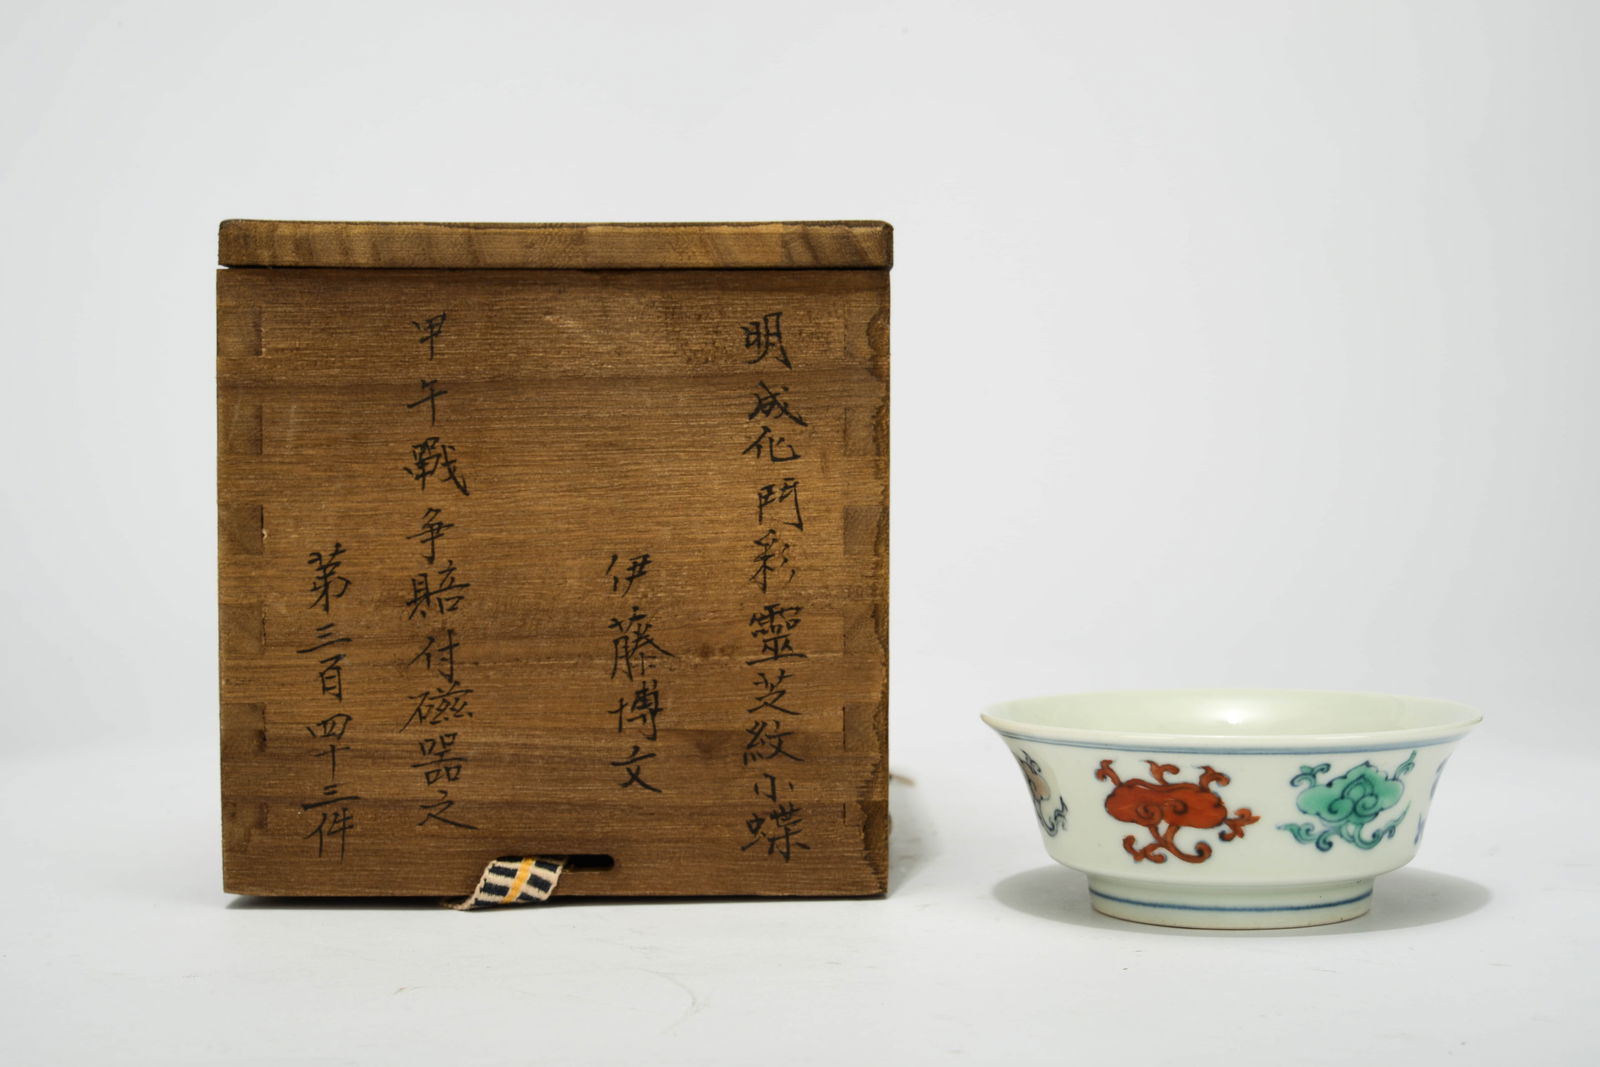 明成化鬥彩靈芝紋小蝶
伊藤博文
甲午戰争賠付磁器之
第三百四十三件